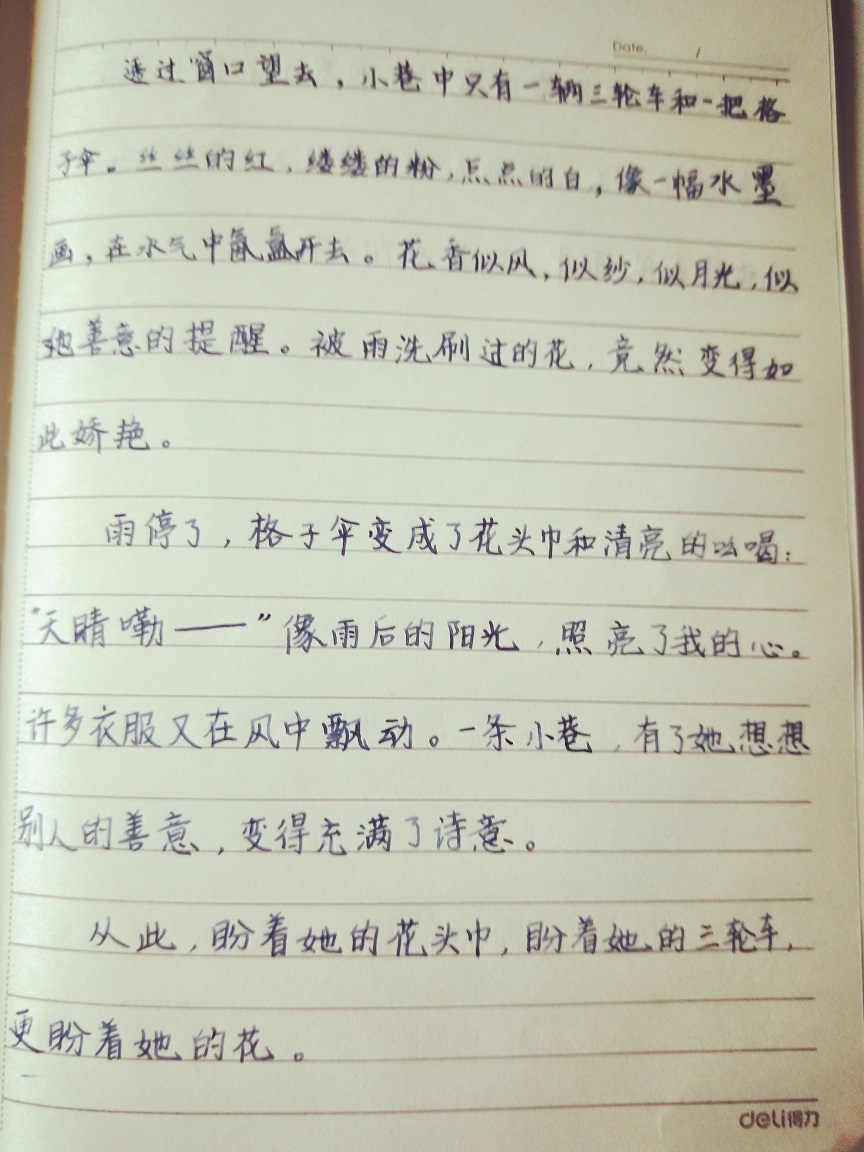 Date. /
透过窗口望去，小巷中只有一辆三轮车和一把格
子伞。丝丝的红，缕缕的粉，点点的白，像一幅水墨
画，在水气中氤氲开去。花香似风，似纱，似月光，似
她善意的提醒。被雨洗刷过的花，竟然变得如
此娇艳。
雨停了，格子伞变成了花头巾和清亮的吆喝：
“天晴嘞——”像雨后的阳光，照亮了我的心。
许多衣服又在风中飘动。一条小巷，有了她想想
别人的善意，变得充满了诗意。
从此，盼着她的花头巾，盼着她的三轮车，
更盼着她的花。
deli得力